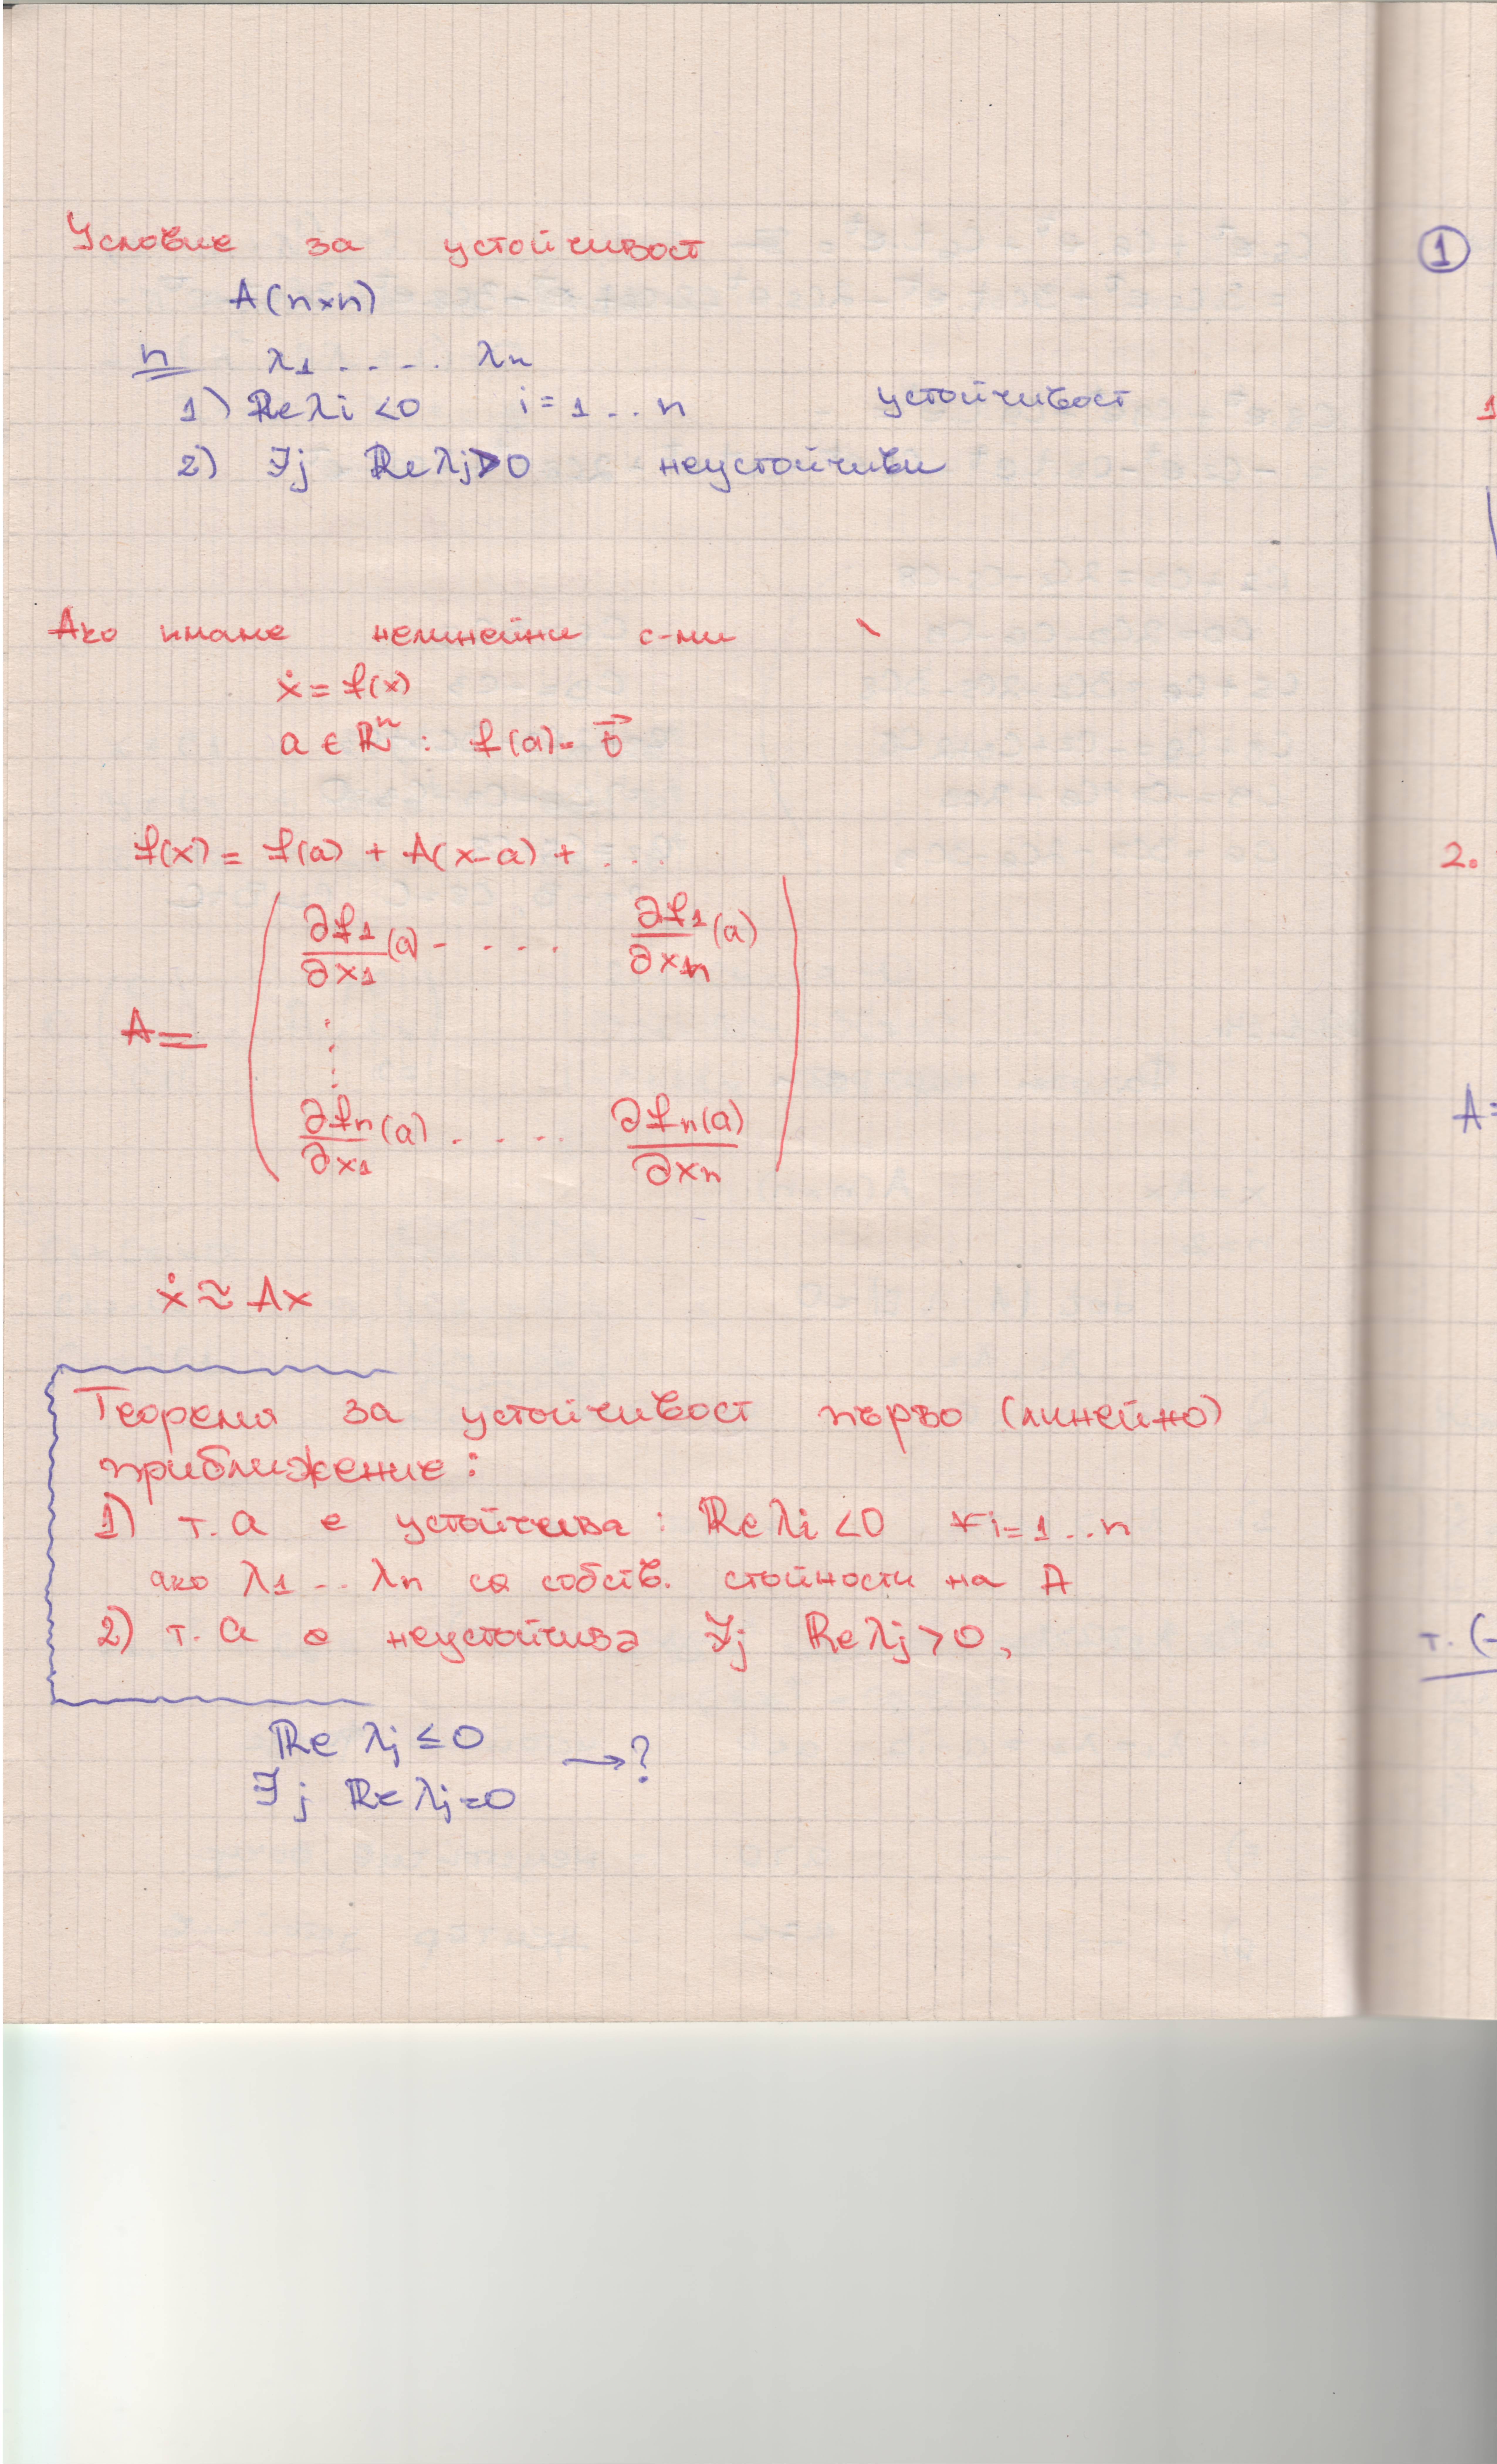 Условие за устойчивост
A(n×n)
n λ1 . . . . . λn
1) Re λi <0 i = 1 ... n устойчивост
2) ∃j Re λj>0 неустойчиви
Ако имаме нелинейни с-ми
ẋ = f(x)
a ∈ ℝⁿ : f(a) = 0⃗
f(x) = f(a) + A(x-a) + . . .
A = ( ∂f1/∂x1 (a) - . . . ∂f1/∂xn (a)
⋮
∂fn/∂x1 (a) . . . . ∂fn(a)/∂xn )
ẋ ≈ Ax
Теорема за устойчивост първо (линейно)
приближение:
1) т. a е устойчива : Re λi <0 ∀i=1..n
ако λ1 .. λn са собств. стойности на A
2) т. a е неустойчива ∃j Re λj > 0,
Re λj ≤ 0 →?
∃j Re λj = 0
1
1
2.
A=
т. (-